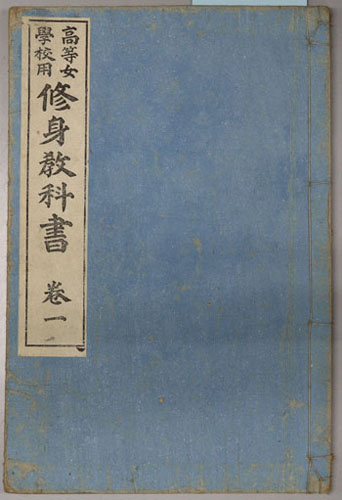 高等女
學校用
修身教科書 卷一